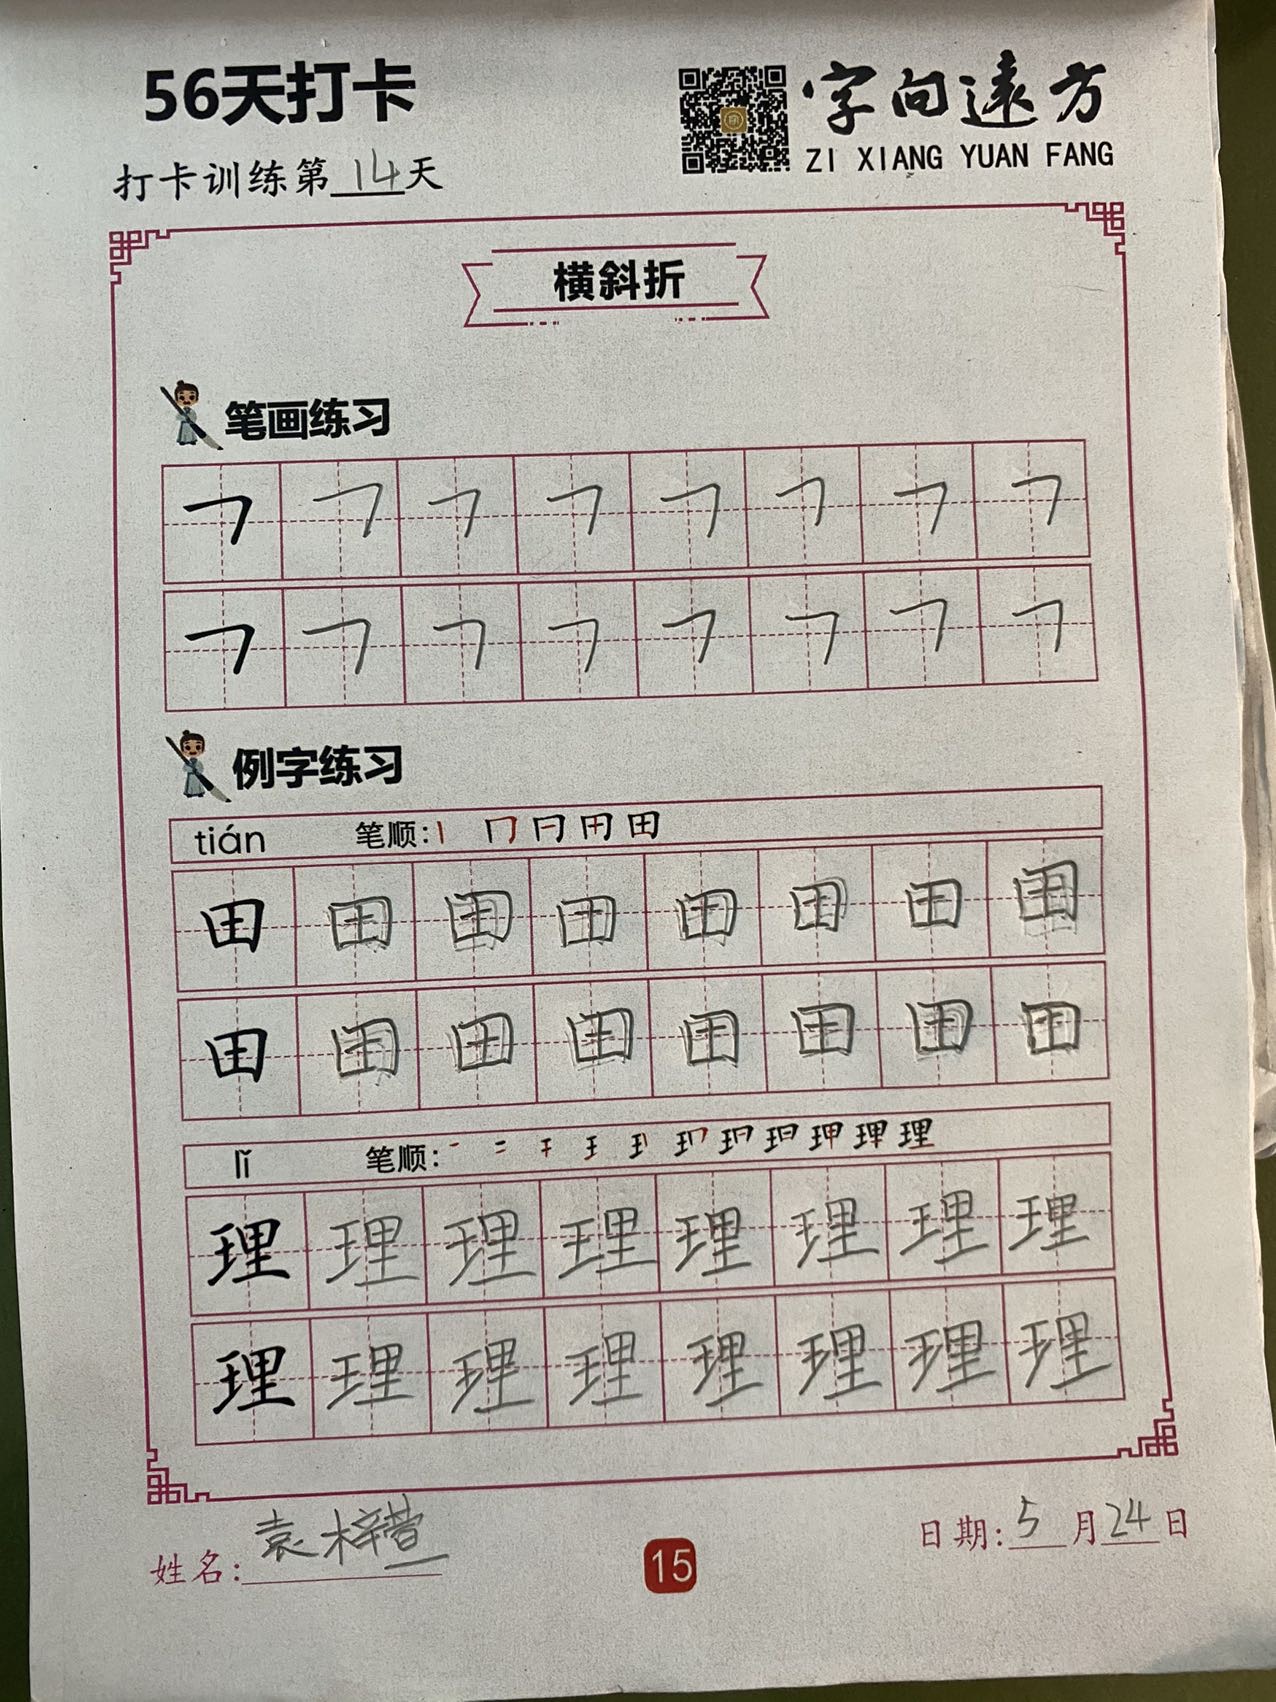 56天打卡
字向遠方
ZI XIANG YUAN FANG
打卡训练第14天
横斜折
笔画练习
㇕ ㇕ ㇕ ㇕ ㇕ ㇕ ㇕ ㇕
㇕ ㇕ ㇕ ㇕ ㇕ ㇕ ㇕ ㇕
例字练习
tián 笔顺:丨 冂 日 田 田
田 田 田 田 田 田 田 田
田 田 田 田 田 田 田 田
lǐ 笔顺:
理 理 理 理 理 理 理 理
理 理 理 理 理 理 理 理
姓名:袁梓萱
15
日期:5月24日